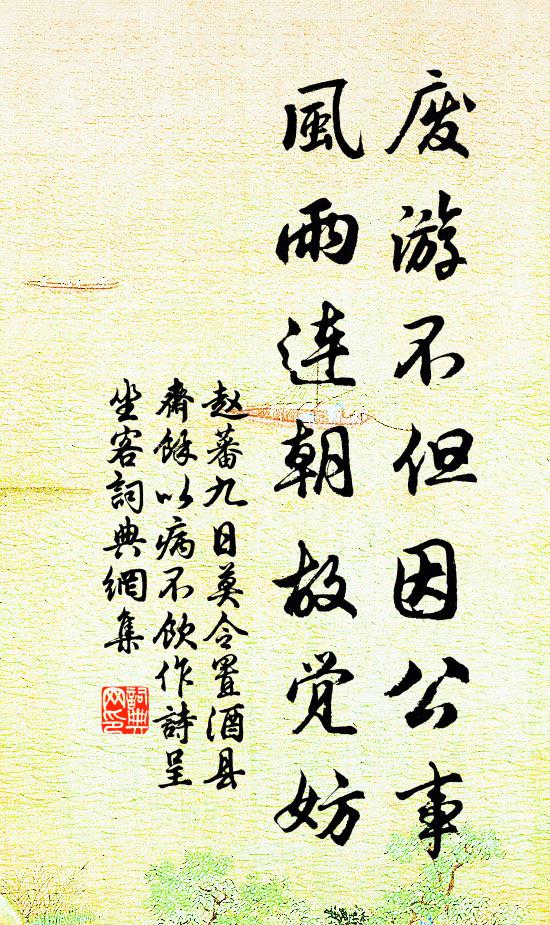 废游不但因公事
風雨连朝故觉妨
赵蕃九日莫令置酒县
齋馀以病不飲作詩呈
坐客詞典網集
詞典
网印